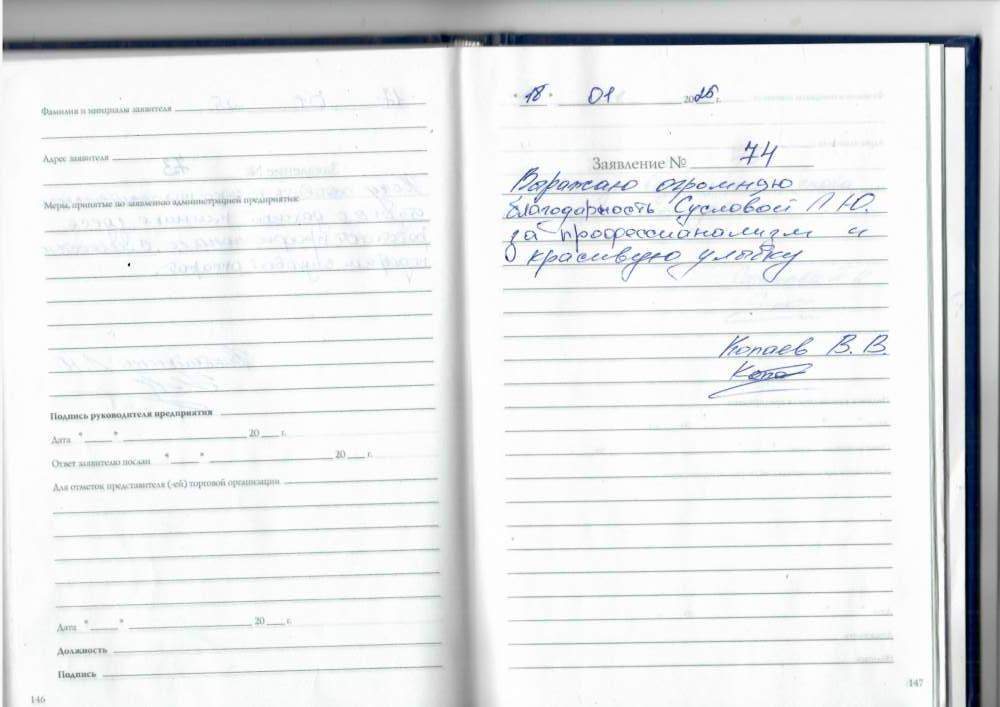 Фамилия и инициалы заявителя
Адрес заявителя
Меры, принятые по заявлению администрацией предприятия:
Подпись руководителя предприятия
Дата " " 20 г.
Ответ заявителю послан " " 20 г.
Для отметок представителя (-ей) торговой организации
Дата " " 20 г.
Должность
Подпись
146
" 18 " 01 20 г.
Заявление № 74
Выражаю огромную
благодарность Сусловой Л.Ю.
за профессианализм и
красивую улыбку
Копаев В. В.
147